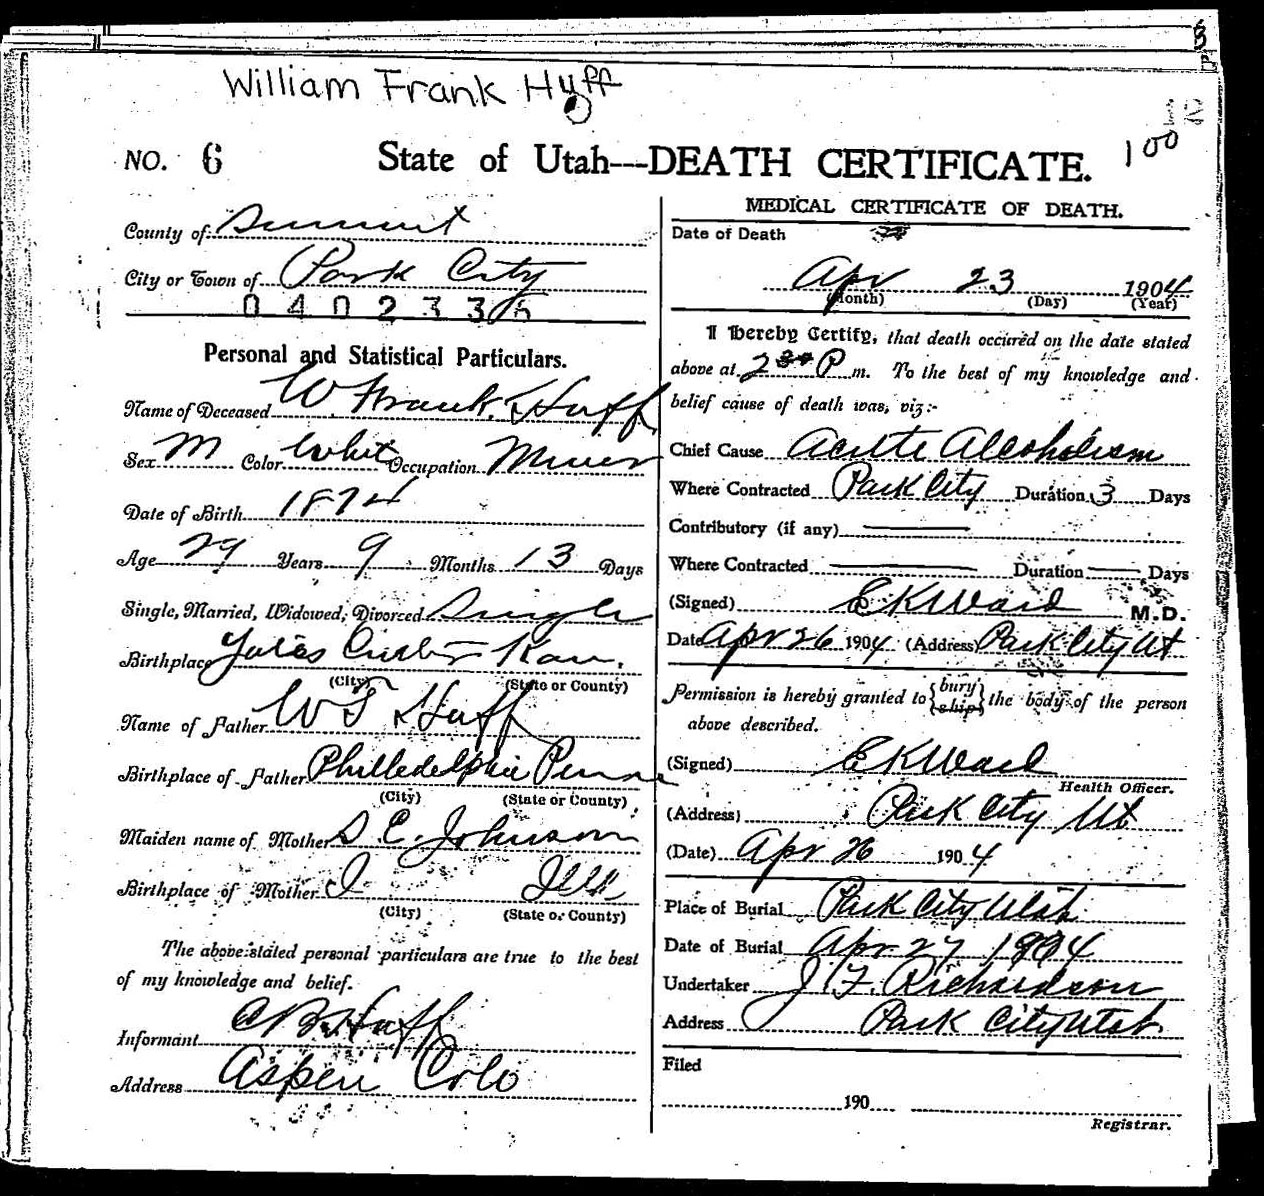 William Frank Huff
100
NO. 6 State of Utah---DEATH CERTIFICATE.
County of Summit
City or Town of Park City
0402335
Personal and Statistical Particulars.
Name of Deceased W. Frank Huff
Sex M Color Whit Occupation Miner
Date of Birth 1874
Age 29 Years 9 Months 13 Days
Single, Married, Widowed, Divorced Single
Birthplace Yates Center Kan.
(City) (State or County)
Name of Father W F Huff
Birthplace of Father Philledelphie Penna
(City) (State or County)
Maiden name of Mother S E. Johnson
Birthplace of Mother Ill
(City) (State or County)
The above stated personal particulars are true to the best
of my knowledge and belief.
Informant C B Huff
Address Aspen Colo
MEDICAL CERTIFICATE OF DEATH.
Date of Death
Apr 23 1904
(Month) (Day) (Year)
I hereby Certify, that death occured on the date stated
above at 2 30 P m. To the best of my knowledge and
belief cause of death was, viz:-
Chief Cause Acute Alcoholism
Where Contracted Park City Duration 3 Days
Contributory (if any)
Where Contracted Duration Days
(Signed) E K Ward M.D.
Date Apr 26 1904 (Address) Park City Ut
Permission is hereby granted to {bury ship} the body of the person
above described.
(Signed) E K Ward
Health Officer.
(Address) Park City Ut
(Date) Apr 26 1904
Place of Burial Park City Utah
Date of Burial Apr 27 1904
Undertaker J. F. Richardson
Address Park City Utah
Filed
190
Registrar.